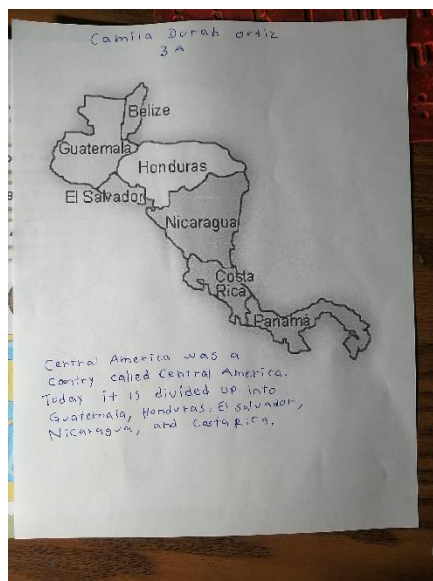 Camila Durah Ortiz
3 A
Belize
Guatemala
Honduras
El Salvador
Nicaragua
Costa
Rica
Panamá
Central America was a
Coontry called Central America.
Today it is divided up into
Guatemala, Honduras, El salvador,
Nicaragua, and Costa Rica.